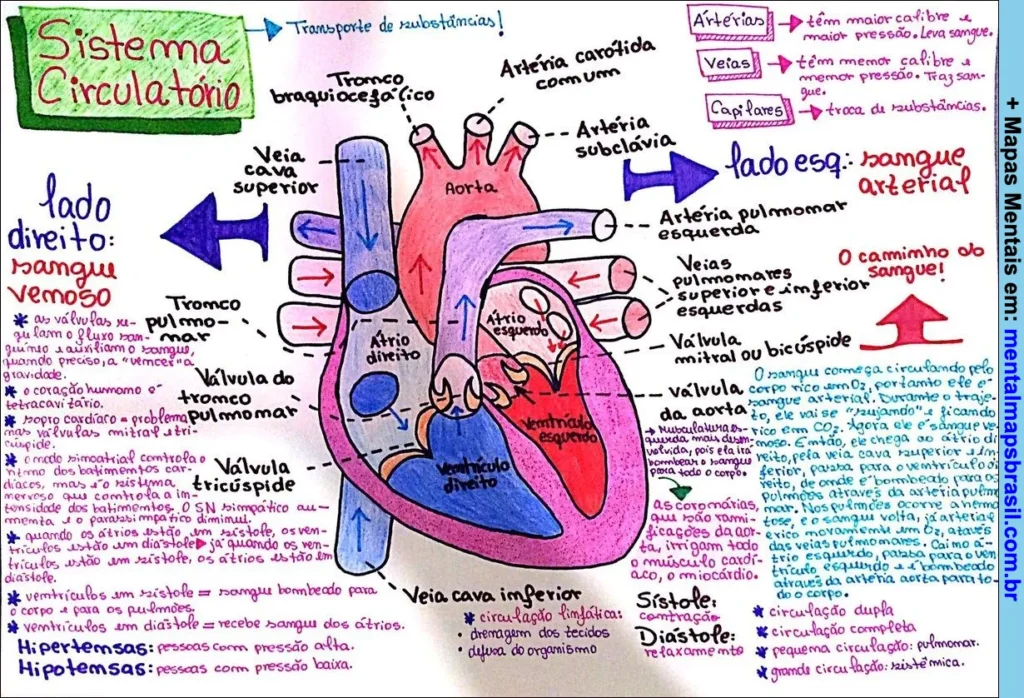 Sistema
Circulatório
Transporte de substâncias!
Artérias
têm maior calibre e
maior pressão. Leva sangue.
Veias
têm menor calibre e
menor pressão. Traz san-
gue.
Capilares
troca de substâncias.
Tronco
braquiocefálico
Artéria carótida
comum
Artéria
subclávia
Veia
cava
superior
Aorta
lado esq.: sangue
arterial
lado
direito:
sangue
venoso
Artéria pulmonar
esquerda
Veias
pulmonares
superior e inferior
esquerdas
O caminho do
sangue!
Tronco
pulmo-
nar
Átrio
direito
Átrio
esquerdo
Válvula
mitral ou bicúspide
Válvula do
tronco
pulmonar
válvula
da aorta
Ventrículo
esquerdo
Ventrículo
direito
Válvula
tricúspide
Veia cava inferior
as válvulas re-
gulam o fluxo san-
guíneo e auxiliam o sangue,
quando preciso, a "vencer" a
gravidade.
o coração humano é
tetracavitário.
sopro cardíaco = problema
nas válvulas mitral e tri-
cúspide.
o nodo sinoatrial controla o
ritmo dos batimentos car-
díacos, mas é o sistema
nervoso que controla a in-
tensidade dos batimentos. O SN simpático au-
menta e o parassimpático diminui.
quando os átrios estão em sístole, os ven-
trículos estão em diástole já quando os ven-
trículos estão em sístole, os átrios estão em
diástole.
ventrículos em sístole = sangue bombeado para
o corpo e para os pulmões.
ventrículos em diástole = recebe sangue dos átrios.
Hipertensas: pessoas com pressão alta.
Hipotensas: pessoas com pressão baixa.
Musculatura es-
querda mais desen-
volvida, pois ela irá
bombear o sangue
para todo o corpo.
as coronárias,
que são rami-
ficações da aor-
ta, irrigam todo
o músculo cardí-
aco, o miocárdio.
O sangue começa circulando pelo
corpo rico em O₂, portanto ele é
sangue arterial. Durante o traje-
to, ele vai se "sujando" e ficando
rico em CO₂. Agora ele é sangue ve-
noso. Então, ele chega ao átrio di-
reito, pela veia cava superior e in-
ferior, passa para o ventrículo di-
reito, de onde é bombeado para os
pulmões através da artéria pulmo-
nar. Nos pulmões ocorre a hema-
tose, e o sangue volta, já arterial
e rico novamente em O₂, através
das veias pulmonares. Cai no á-
trio esquerdo, passa para o ven-
trículo esquerdo e é bombeado
através da artéria aorta para to-
do o corpo.
circulação linfática:
• drenagem dos tecidos
• defesa do organismo
Sístole:
contração
Diástole:
relaxamento
circulação dupla
circulação completa
pequena circulação: pulmonar.
grande circulação: sistêmica.
+ Mapas Mentais em: mentalmapsbrasil.com.br